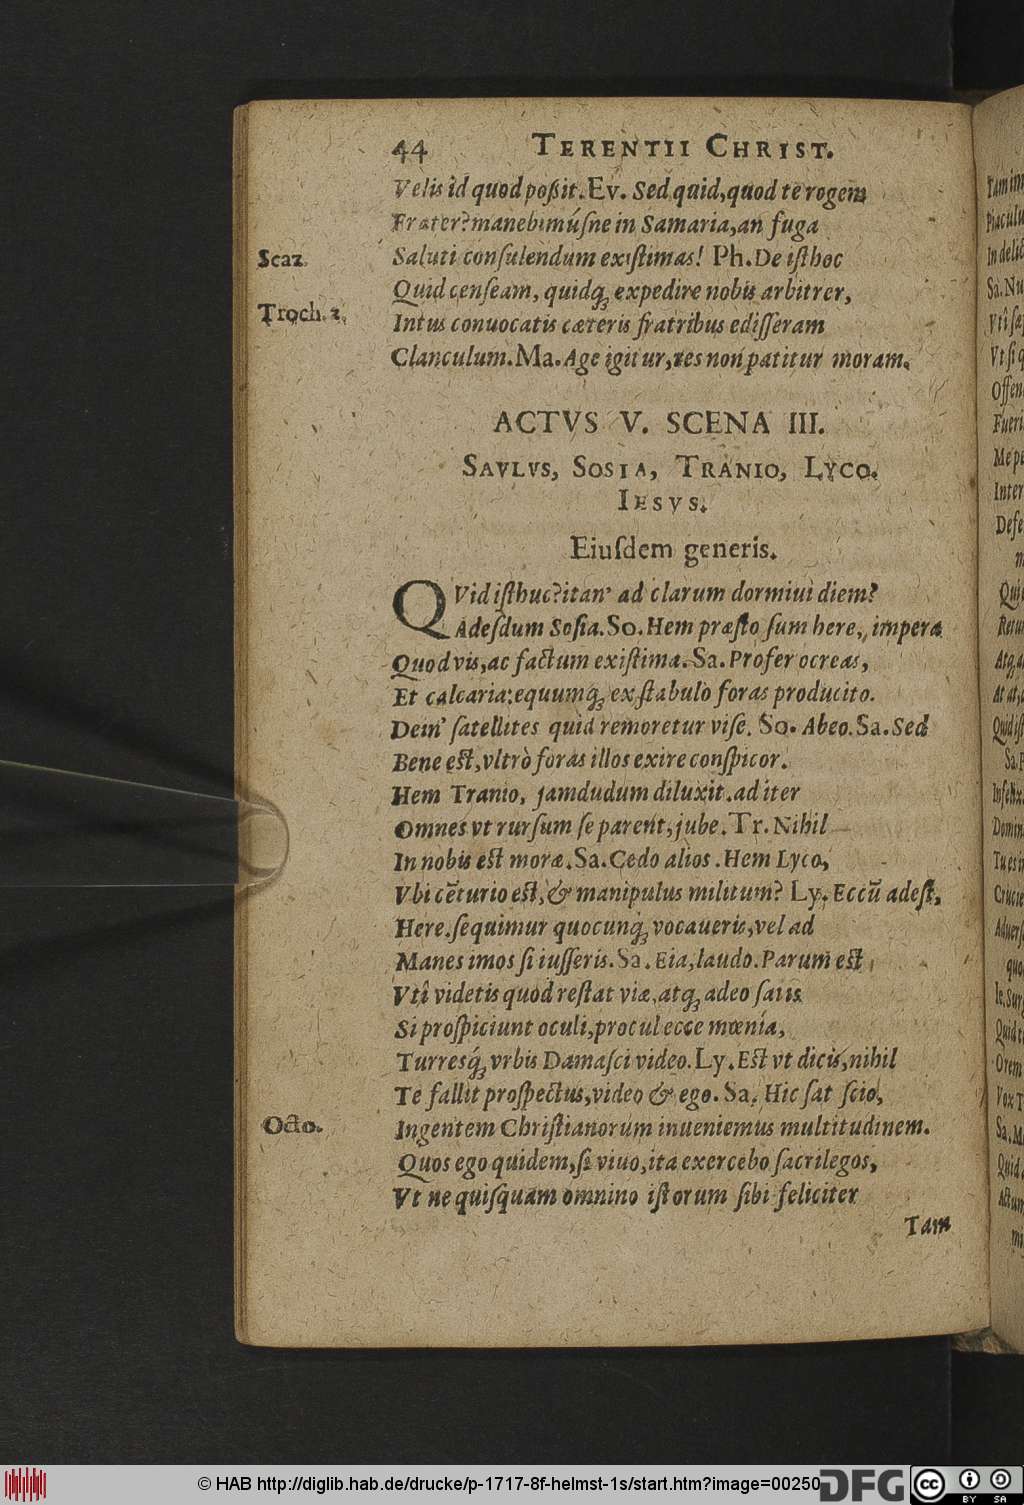 44 TERENTII CHRIST.
Velis id quod poßit. Ev. Sed quid, quod te rogem
Frater? manebimúsne in Samaria, an fuga
Scaz. Saluti conſulendum exiſtimas! Ph. De iſthoc
Quid cenſeam, quidq́ꝫ expedire nobis arbitrer,
Troch. 2. Intus conuocatis cæteris fratribus ediſſeram
Clanculum. Ma. Age igitur, res non patitur moram.
ACTVS V. SCENA III.
SAVLVS, SOSIA, TRANIO, LYCO.
IESVS.
Eiuſdem generis.
QVid iſthuc? itan' ad clarum dormiui diem?
Adeſdum Soſia. So. Hem præſto ſum here, impera
Quod vis, ac factum exiſtima. Sa. Profer ocreas,
Et calcaria: equumq́ꝫ ex ſtabulo foras producito.
Dein' ſatellites quid remoretur viſe. So. Abeo. Sa. Sed
Bene eſt, vltrò foras illos exire conſpicor.
Hem Tranio, jamdudum diluxit. ad iter
Omnes vt rurſum ſe parent, jube. Tr. Nihil
In nobis eſt moræ. Sa. Cedo alios. Hem Lyco,
Vbi cẽturio eſt, & manipulus militum? Ly. Eccũ adeſt,
Here. ſequimur quocunq́ꝫ vocaueris, vel ad
Manes imos ſi iuſſeris. Sa. Eia, laudo. Parum eſt
Vti videtis quod reſtat viæ, atq́ꝫ adeo ſatis
Si proſpiciunt oculi, procul ecce mœnia,
Turresq́ꝫ vrbis Damaſci video. Ly. Eſt vt dicis, nihil
Te fallit proſpectus, video & ego. Sa. Hic ſat ſcio,
Octo. Ingentem Chriſtianorum inueniemus multitudinem.
Quos ego quidem, ſi viuo, ita exercebo ſacrilegos,
Vt ne quiſquam omnino iſtorum ſibi feliciter
Tam
© HAB http://diglib.hab.de/drucke/p-1717-8f-helmst-1s/start.htm?image=00250
DFG
cc BY SA